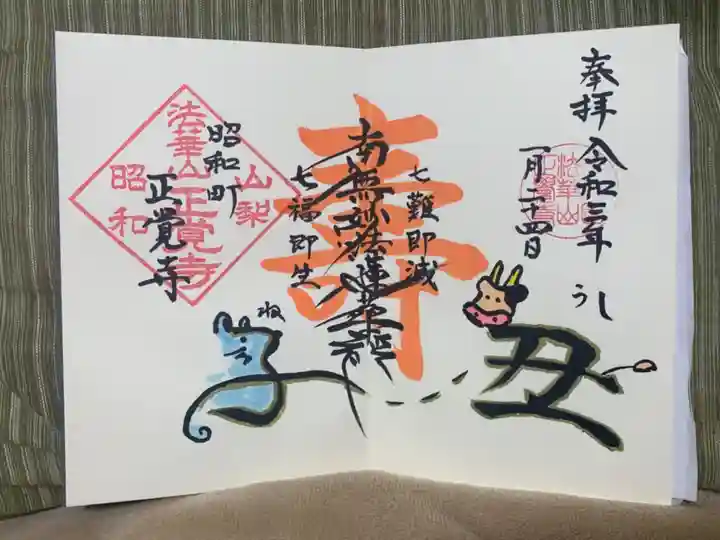 奉拝
令和三年
一月二十四日
うし
丑
七難即滅
南無妙法蓮華経
七福即生
寿
ね
子
昭和町
正覚寺
山梨
法華山正覚寺
昭和
法華山
正覺寺